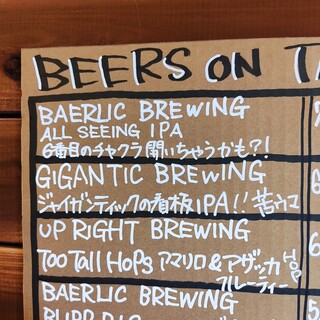 BEERS ON TA
BAERLIC BREWING
ALL SEEING IPA
6番目のチャクラ開いちゃうかも?!
GIGANTIC BREWING
ジャイガンティックの看板IPA!! 苦ウマ
UP RIGHT BREWING
TOO TALL HOPS アマリロ&アザッカHOP
フルーティー
BAERLIC BREWING